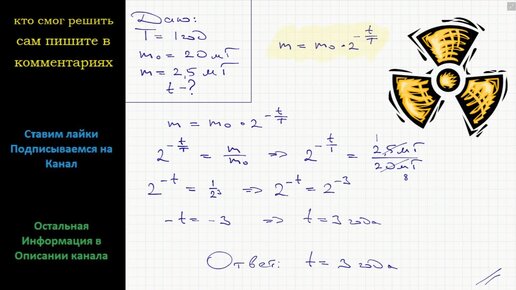 кто смог решить
сам пишите в
комментариях
Ставим лайки
Подписываемся на
Канал
Остальная
Информация в
Описании канала
Дано:
T = 1 год
m₀ = 20 мг
m = 2,5 мг
t - ?
m = m₀ · 2^(-t/T)
m = m₀ · 2^(-t/T)
2^(-t/T) = m/m₀ => 2^(-t/1) = 2,5мг/20мг 1 8
2^(-t) = 1/2³ => 2^(-t) = 2^(-3)
-t = -3 => t = 3 года
Ответ: t = 3 года